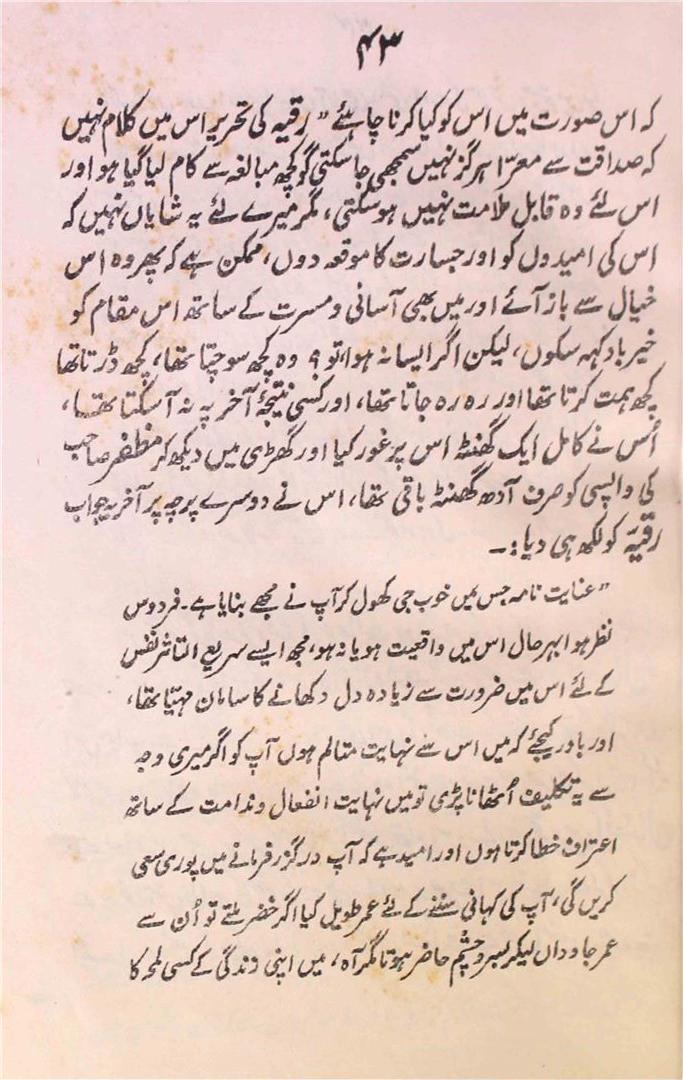 ۴۳
کہ اس صورت میں اس کو کیا کرنا چاہئے” رقیہ کی تحریر اس میں کلام نہیں
کہ صداقت سے معرّا ہرگز نہیں سمجھی جا سکتی گو کچھ مبالغہ سے کام لیا گیا ہو اور
اس لئے وہ قابل ملامت نہیں ہو سکتی، مگر میرے لئے یہ شایاں نہیں کہ
اس کی امیدوں کو اور جسارت کا موقعہ دوں، ممکن ہے کہ پھر وہ اس
خیال سے باز آئے اور میں بھی آسانی و مسرت کے ساتھ اس مقام کو
خیر باد کہہ سکوں، لیکن اگر ایسا نہ ہوا، تو ؟ وہ کچھ سوچتا تھا، کچھ ڈرتا تھا
کچھ ہمت کرتا تھا اور رہ رہ جاتا تھا، اور کسی نتیجۂ آخر پہ نہ آ سکتا تھا،
اُس نے کامل ایک گھنٹہ اس پر غور کیا اور گھڑی میں دیکھ کر مظفر صاحب
کی واپسی کو صرف آدھ گھنٹہ باقی تھا، اس نے دوسرے پرچہ پر آخر یہ جواب
رقیّہ کو لکھ ہی دیا :۔
”عنایت نامہ جس میں خوب جی کھول کر آپ نے مجھے بنایا ہے۔ فردوس
نظر ہوا بہر حال اس میں واقعیت ہو یا نہ ہو، مجھ ایسے سریع التاثر نفس
کے لئے اس میں ضرورت سے زیادہ دل دکھانے کا سامان مہیّا تھا،
اور باور کیجئے کہ میں اس سے نہایت متالم ہوں آپ کو اگر میری وجہ
سے یہ تکلیف اُٹھانا پڑی تو میں نہایت انفعال و ندامت کے ساتھ
اعتراف خطا کرتا ہوں اور امید ہے کہ آپ درگزر فرمانے میں پوری سعی
کریں گی، آپ کی کہانی سننے کے لئے عمر طویل کیا اگر خضر ملتے تو اُن سے
عمر جاوداں لیکر بسر و چشم حاضر ہوتا مگر آہ، میں اپنی زندگی کے کسی لمحہ کا